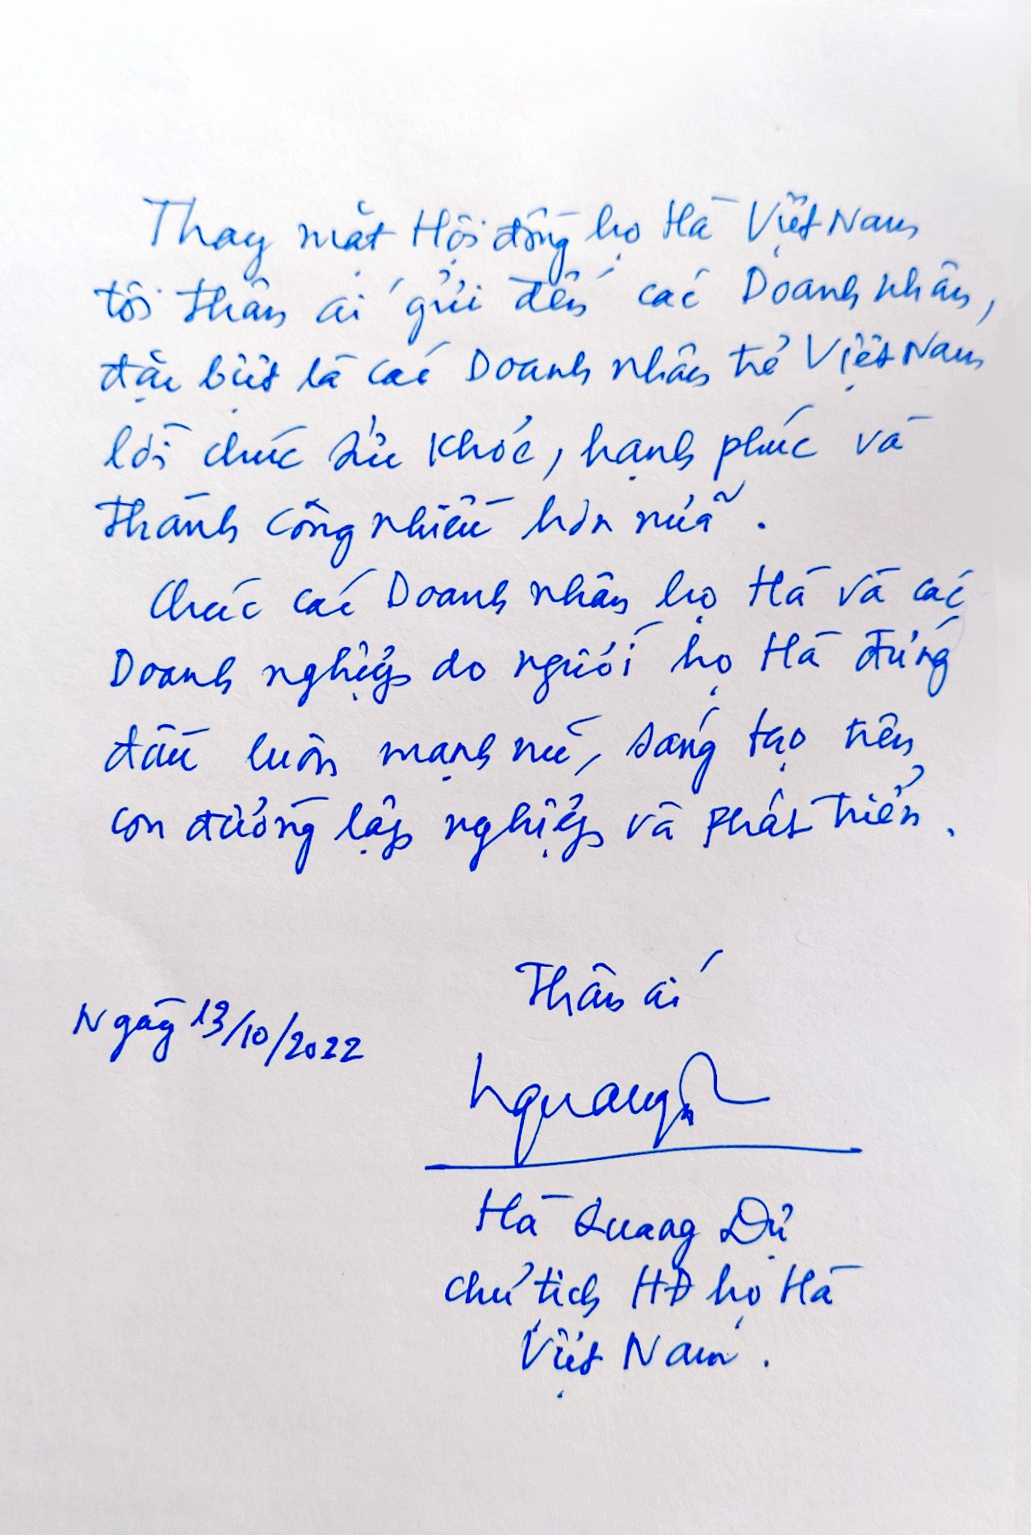 Thay mặt Hội đồng họ Hà Việt Nam
tôi thân ái gửi đến các Doanh nhân,
đặc biệt là các Doanh nhân trẻ Việt Nam
lời chúc sức khỏe, hạnh phúc và
thành công nhiều hơn nữa.
Chúc các Doanh nhân họ Hà và các
Doanh nghiệp do người họ Hà đứng
đầu luôn mạnh mẽ, sáng tạo trên
con đường lập nghiệp và phát triển.
Thân ái
Ngày 13/10/2022
Hà Quang Dự
Chủ tịch HĐ họ Hà
Việt Nam.